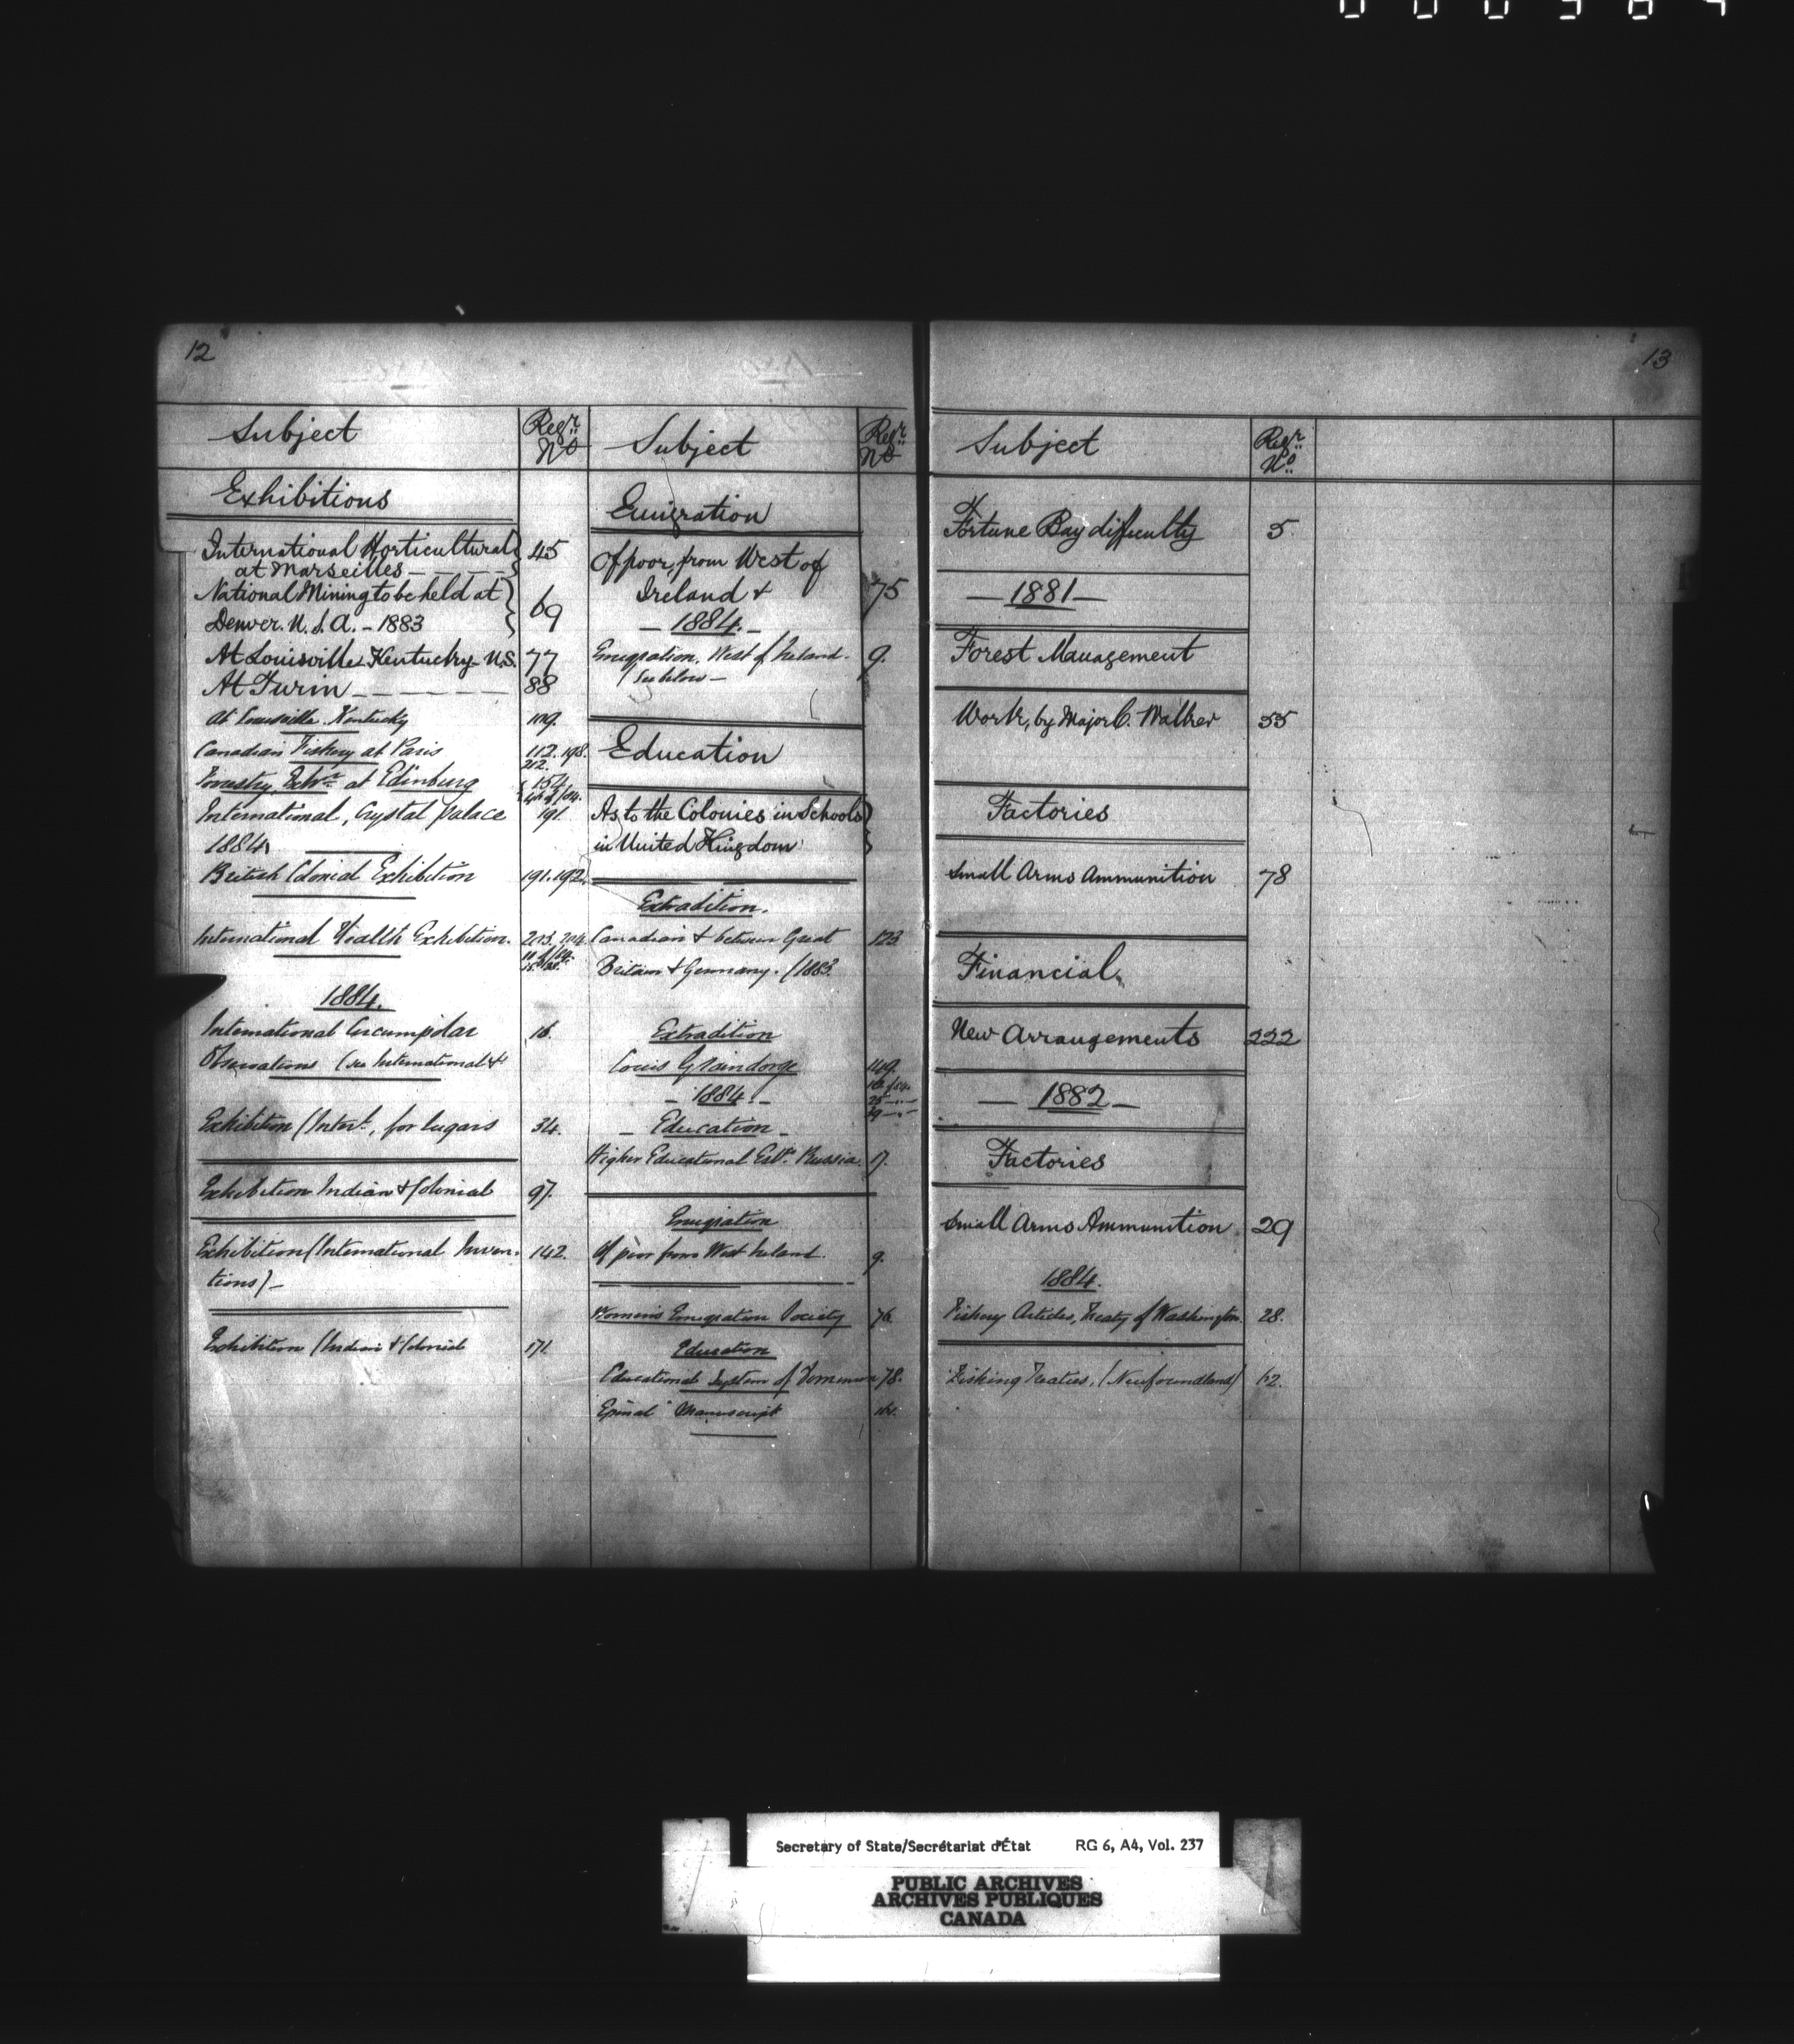 12
Subject
Regr. No
Exhibitions
International Horticultural
at Marseilles
45
National Mining to be held at
Denver. U. S. A. - 1883
69
At Louisville Kentucky U.S. 77
At Turin 88
At Louisville Kentucky 109.
Canadian Fishery at Paris 112. 198.
212.
Forestry Exhn at Edinburg 154
International, Crystal Palace 191
1884
British Colonial Exhibition 191. 192.
International Health Exhibition. 203. 204.
1884.
International Circumpolar 16.
Observations (see International &
Exhibition (Intert, for Sugars 34.
Exhibition Indian & Colonial 97.
Exhibition (International Inven- 142.
tions) -
Exhibition (Indian & Colonial 171.
Subject
Regr. No
Emigration
Of poor, from West of
Ireland & 75
- 1884. -
Emigration, West of Ireland. 9.
See below -
Education
As to the Colonies in Schools
in United Kingdom
Extradition.
Canadian & between Great 123
Britain & Germany. /1883.
Extradition
Louis Graindorge 149.
- 1884. -
- Education -
Higher Educational Estts Russia. 17.
Emigration
Of poor from West Ireland. 9.
Women's Emigration Society 76.
Education
Educational System of Dominion 78.
Epinal Manuscript
13
Subject
Regr. No.
Fortune Bay difficulty 5.
- 1881 -
Forest Management
Work, by Major C. Walker 55
Factories
Small Arms Ammunition 78
Financial
New Arrangements 222
- 1882 -
Factories
Small Arms Ammunition 29
1884.
Fishery Articles, Treaty of Washington. 28.
Fishing Treaties, (Newfoundland) 62.
Secretary of State/Secrétariat d'État RG 6, A4, Vol. 237
PUBLIC ARCHIVES
ARCHIVES PUBLIQUES
CANADA